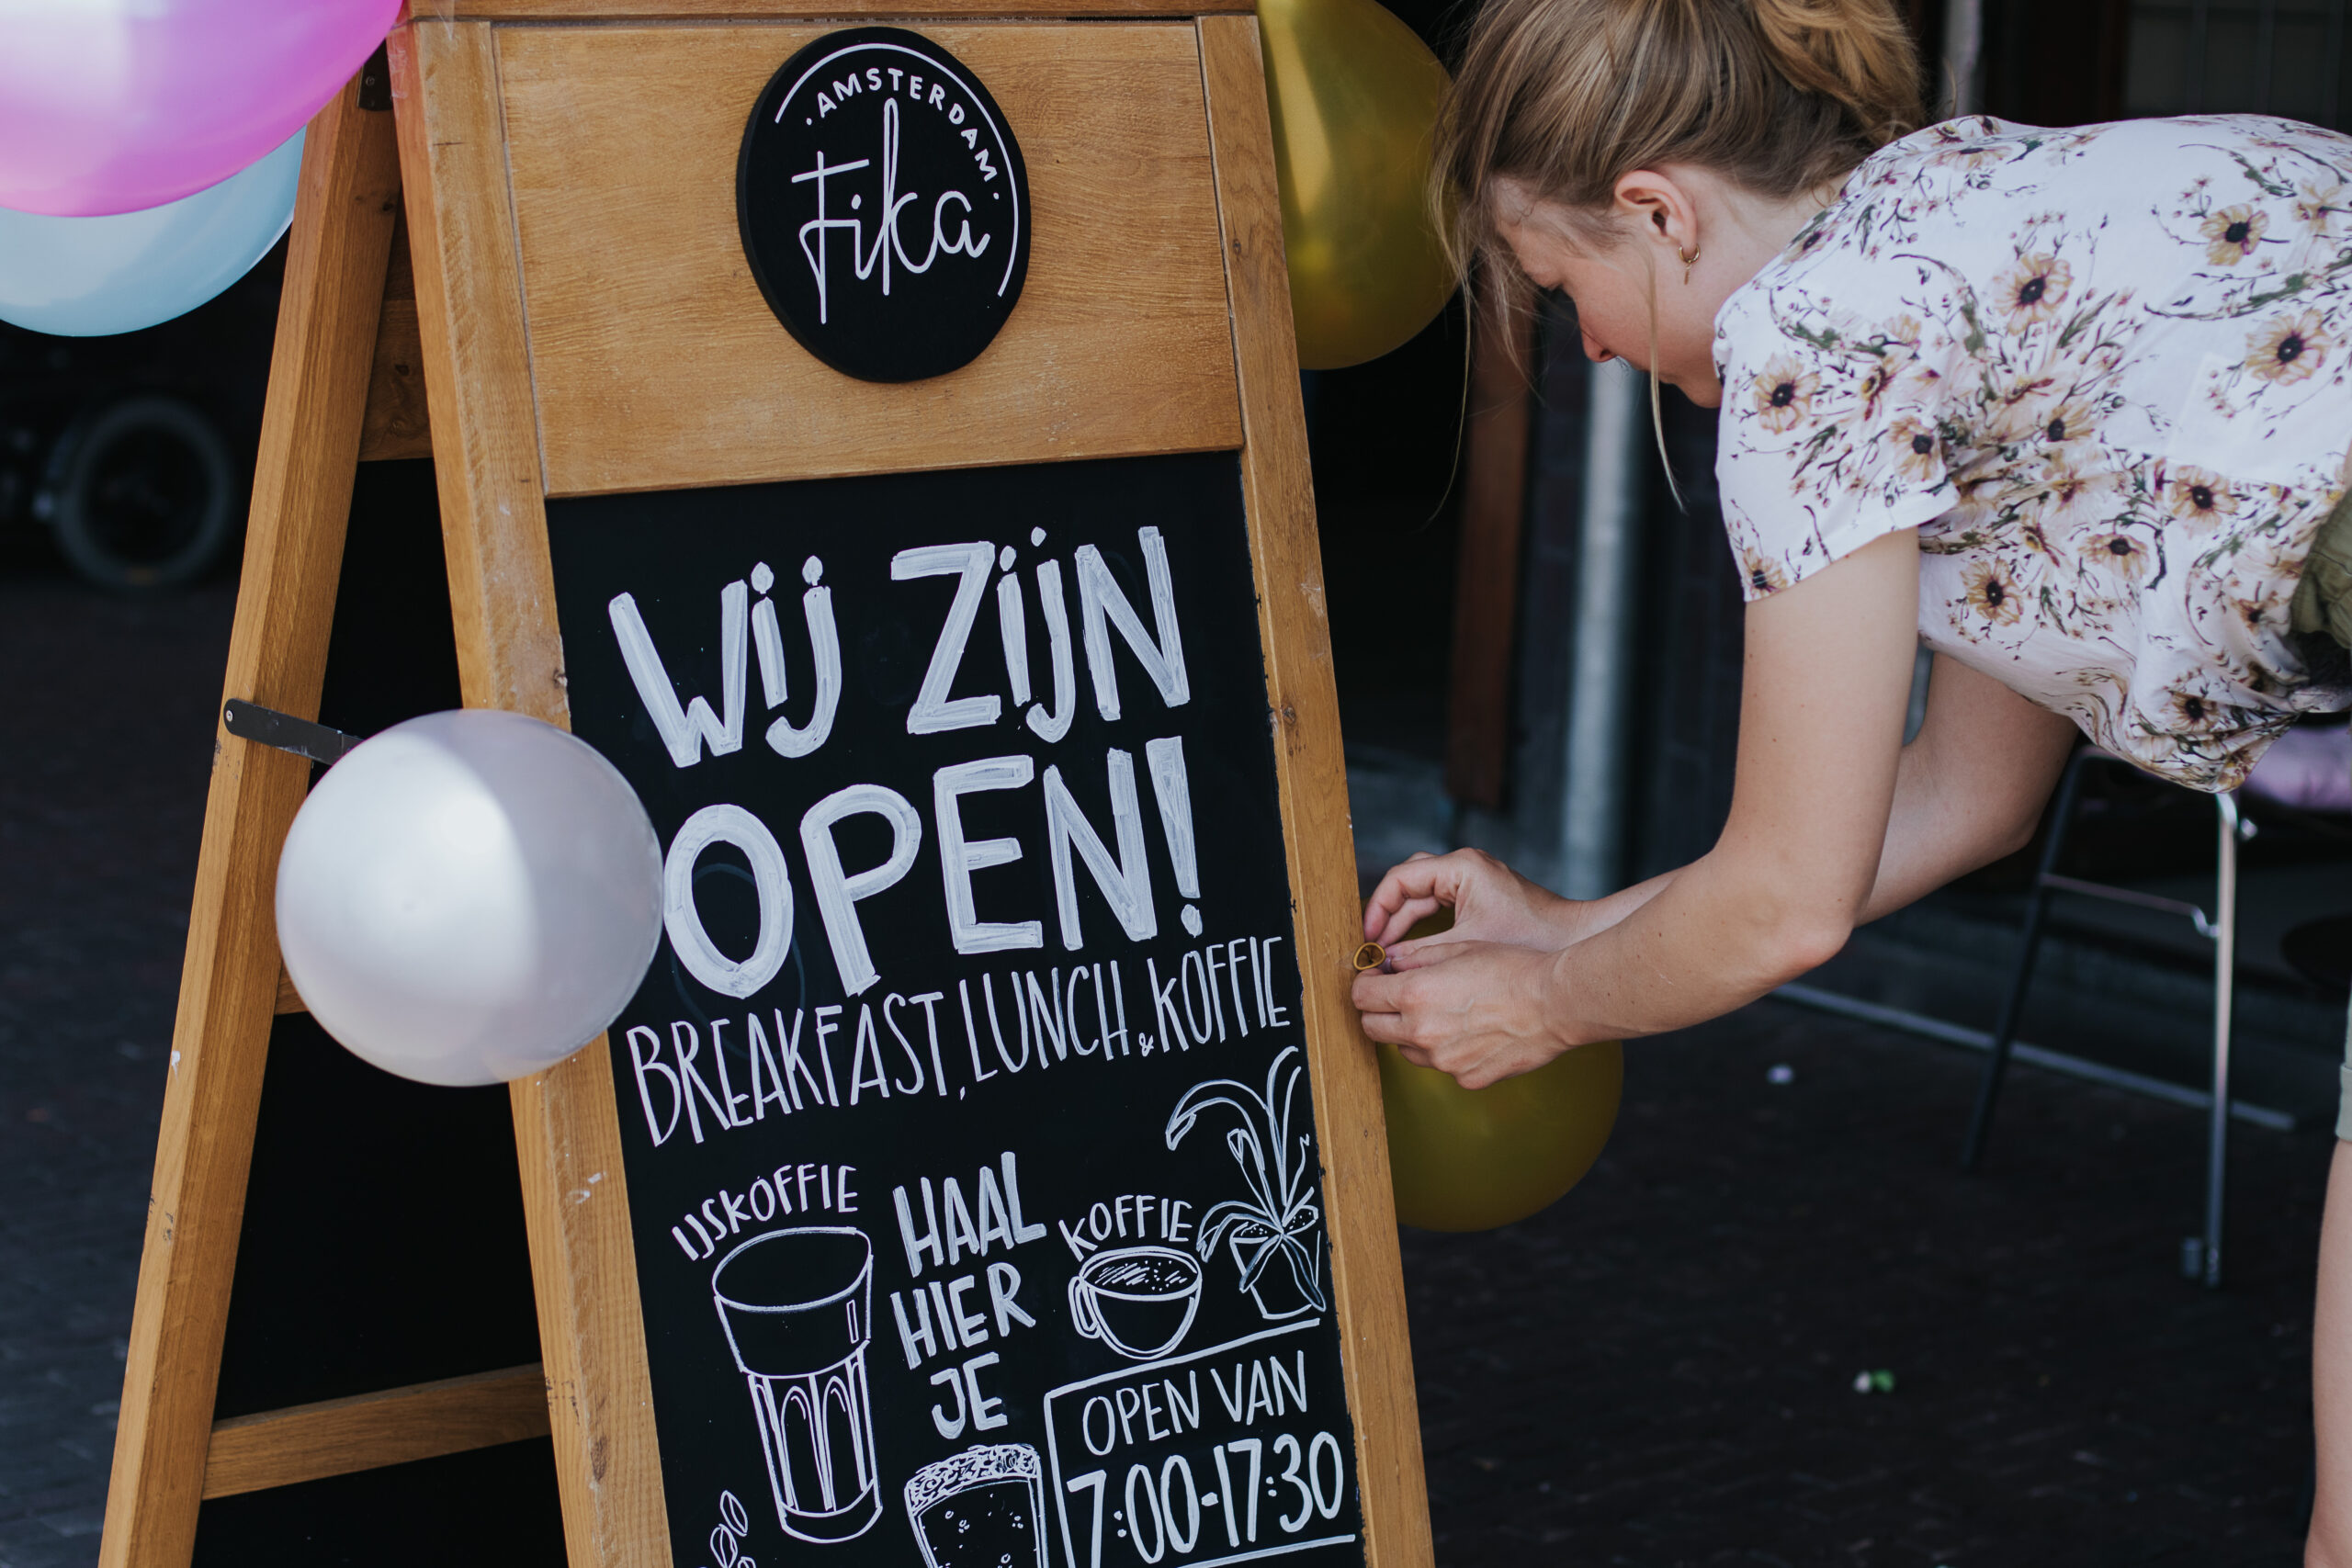 ·AMSTERDAM·
Fika
WIJ ZIJN
OPEN!
BREAKFAST, LUNCH & KOFFIE
IJSKOFFIE
HAAL
HIER
JE
KOFFIE
OPEN VAN
7:00-17:30